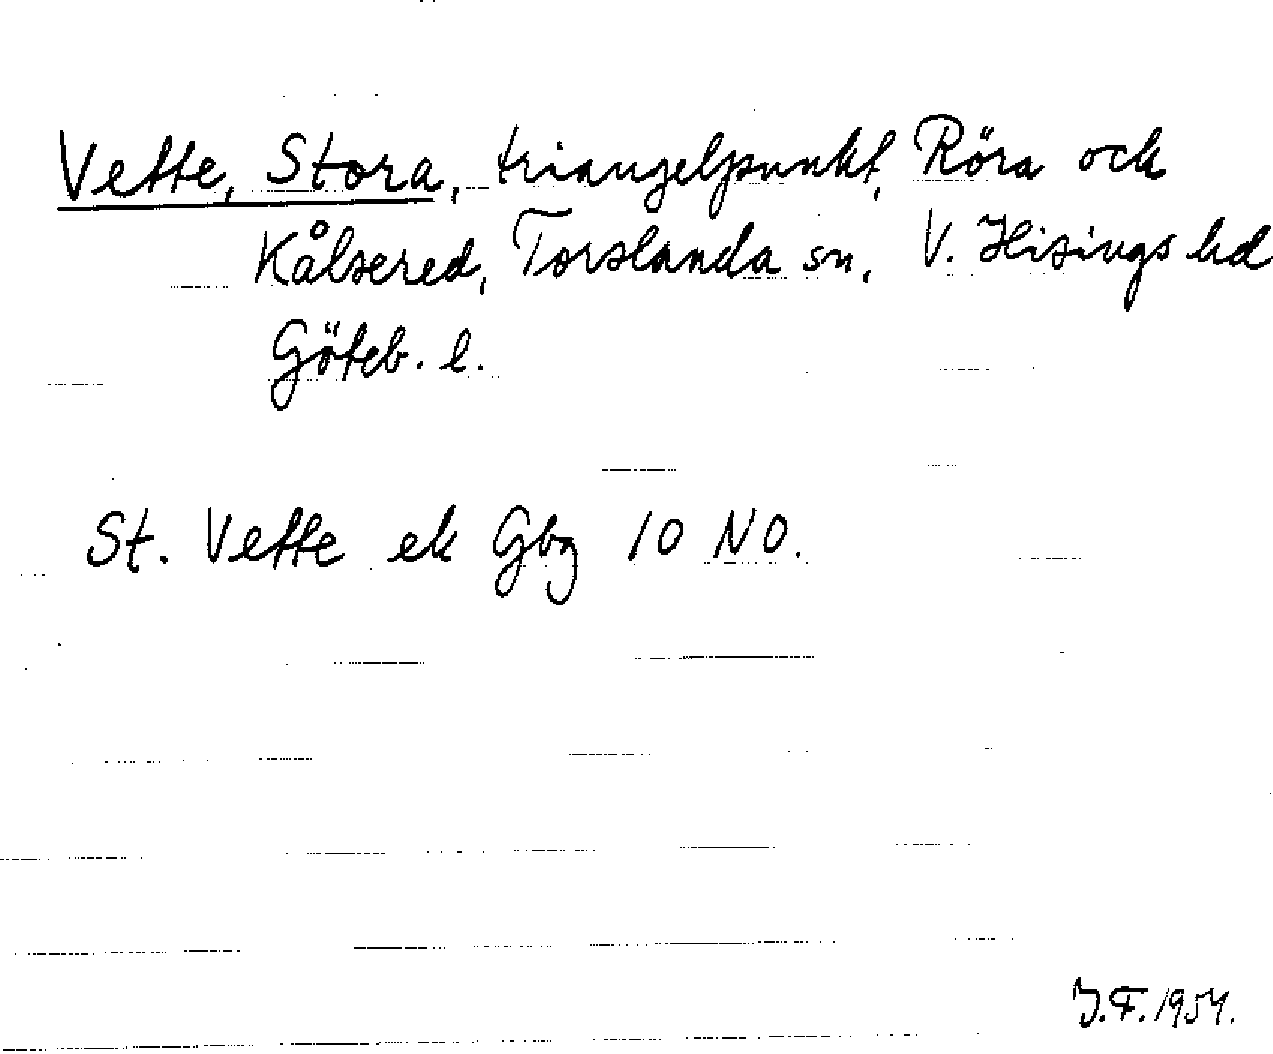 Vette, Stora, triangelpunkt, Röra ock
Kålsered, Torslanda sn, V. Hisings hd
Göteb. l.
St. Vette ek Gbg 10 NO.
J.F. 1954.